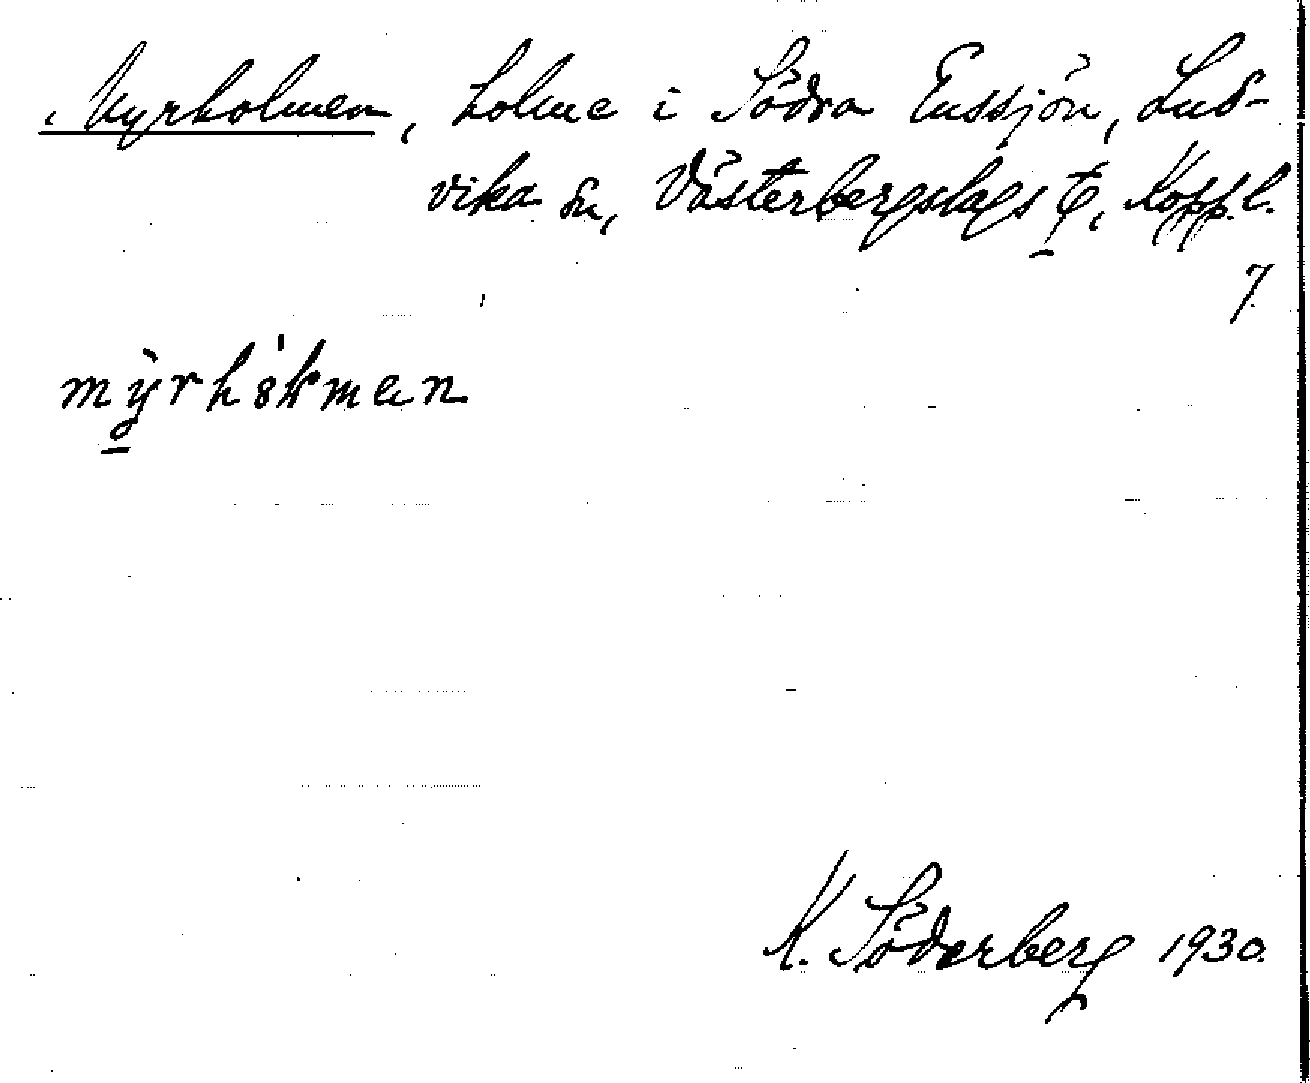 Myrholmen, holme i Södra Enssjön, Lud-
vika sn, Västerbergslags t, Kopp. l.
7
K. Söderberg 1930.